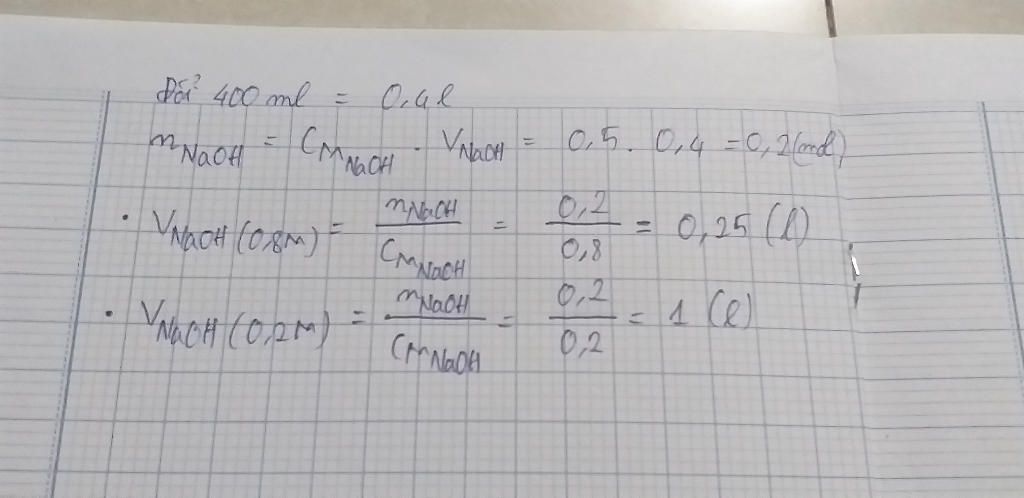 Đổi 400 ml = 0,4 l
nNaOH = CMNaOH . VNaOH = 0,5 . 0,4 = 0,2 (mol)
• VNaOH (0,8M) = nNaOH / CMNaOH = 0,2 / 0,8 = 0,25 (l)
• VNaOH (0,2M) = nNaOH / CMNaOH = 0,2 / 0,2 = 1 (l)